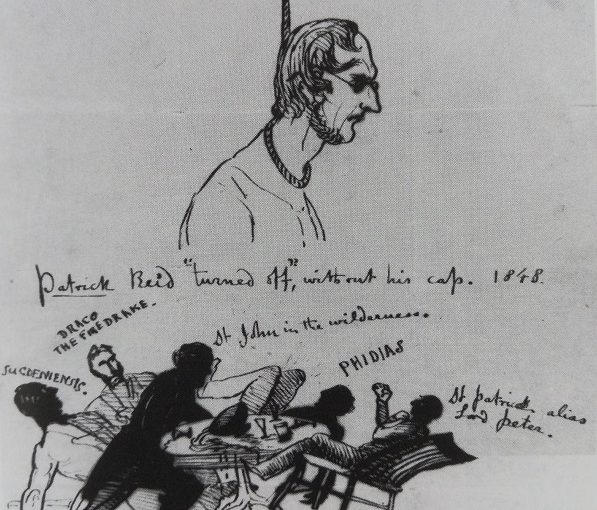 Patrick Reid "turned off", without his cap. 1848.
DRACO
THE FIREDRAKE.
St John in the wilderness.
PHIDIAS
St patrick alias
Lord peter.